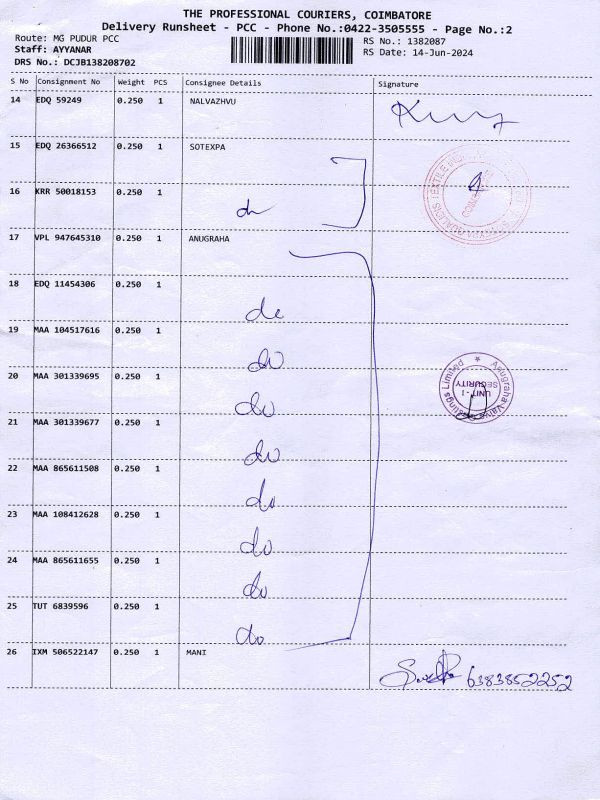 THE PROFESSIONAL COURIERS, COIMBATORE
Delivery Runsheet - PCC - Phone No.:0422-3505555 - Page No.:2
Route: MG PUDUR PCC
RS No.: 1382087
Staff: AYYANAR
RS Date: 14-Jun-2024
DRS No.: DCJB138208702
S No Consignment No Weight PCS Consignee Details Signature
14 EDQ 59249 0.250 1 NALVAZHVU
15 EDQ 26366512 0.250 1 SOTEXPA
16 KRR 50018153 0.250 1
do
17 VPL 947645310 0.250 1 ANUGRAHA
18 EDQ 11454306 0.250 1
do
19 MAA 104517616 0.250 1
do
20 MAA 301339695 0.250 1
do
21 MAA 301339677 0.250 1
do
22 MAA 865611508 0.250 1
do
23 MAA 108412628 0.250 1
do
24 MAA 865611655 0.250 1
do
25 TUT 6839596 0.250 1
do
Anugraha Valve Castings Limited
UNIT - I
SECURITY
26 IXM 506522147 0.250 1 MANI
6383852252